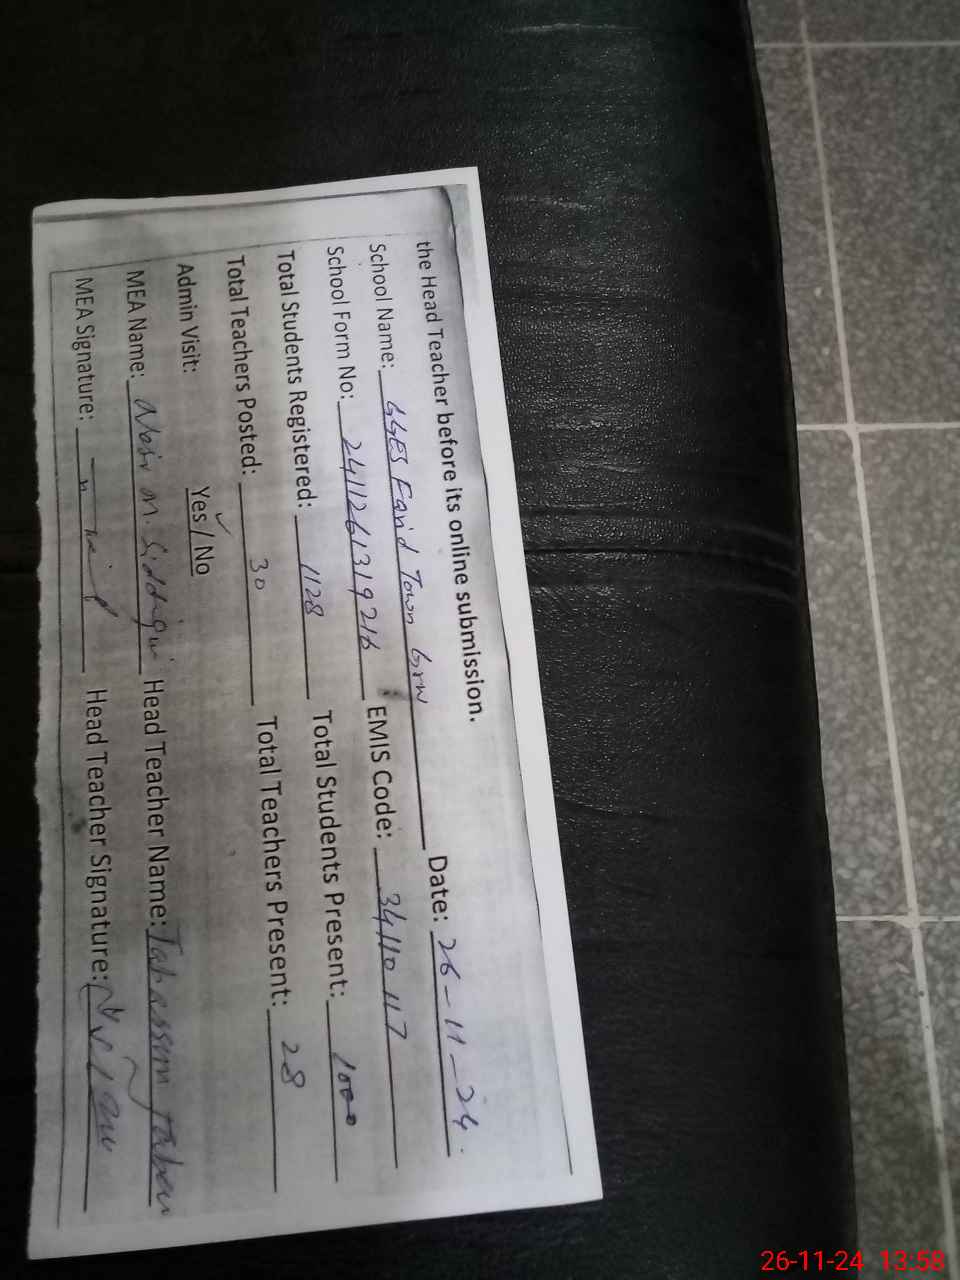 the Head Teacher before its online submission.
School Name: GGES Farid Town Grw Date: 26-11-24.
School Form No: 241126131921b EMIS Code: 34110117
Total Students Registered: 1128 Total Students Present: 1000
Total Teachers Posted: 30 Total Teachers Present: 28
Admin Visit: Yes / No
MEA Name: M. Siddiqui Head Teacher Name: Tabassum
MEA Signature: Head Teacher Signature:
26-11-24 13:58